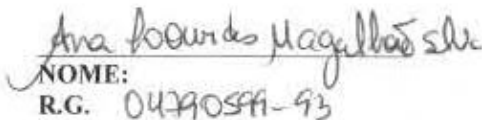 Ana Lourdes Magalhãe Silva
NOME:
R.G. 04790599-93